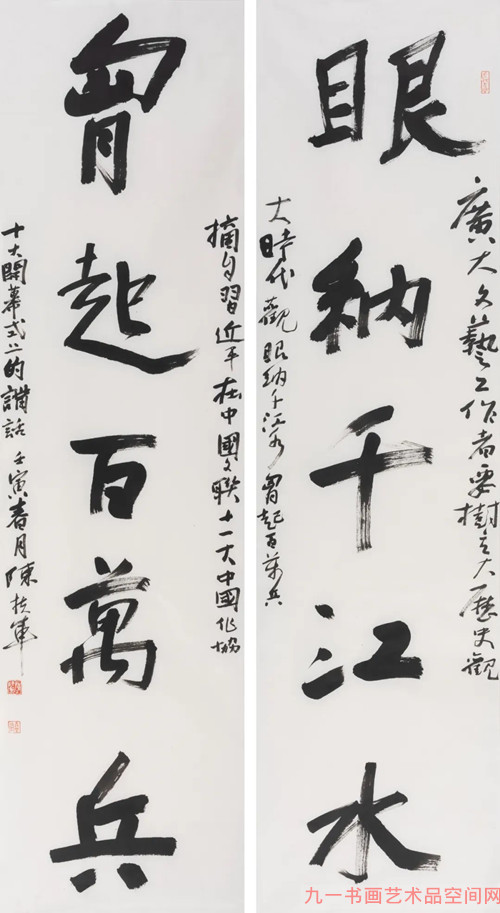 眼納千江水
廣大文藝工作者要樹立大歷史觀
大時代觀 眼納千江水 胷起百萬兵
胷起百萬兵
摘自習近平在中國文聯十一大中國作協
十大開幕式上的講話 壬寅春月陳扶軍
九一书画艺术品空间网